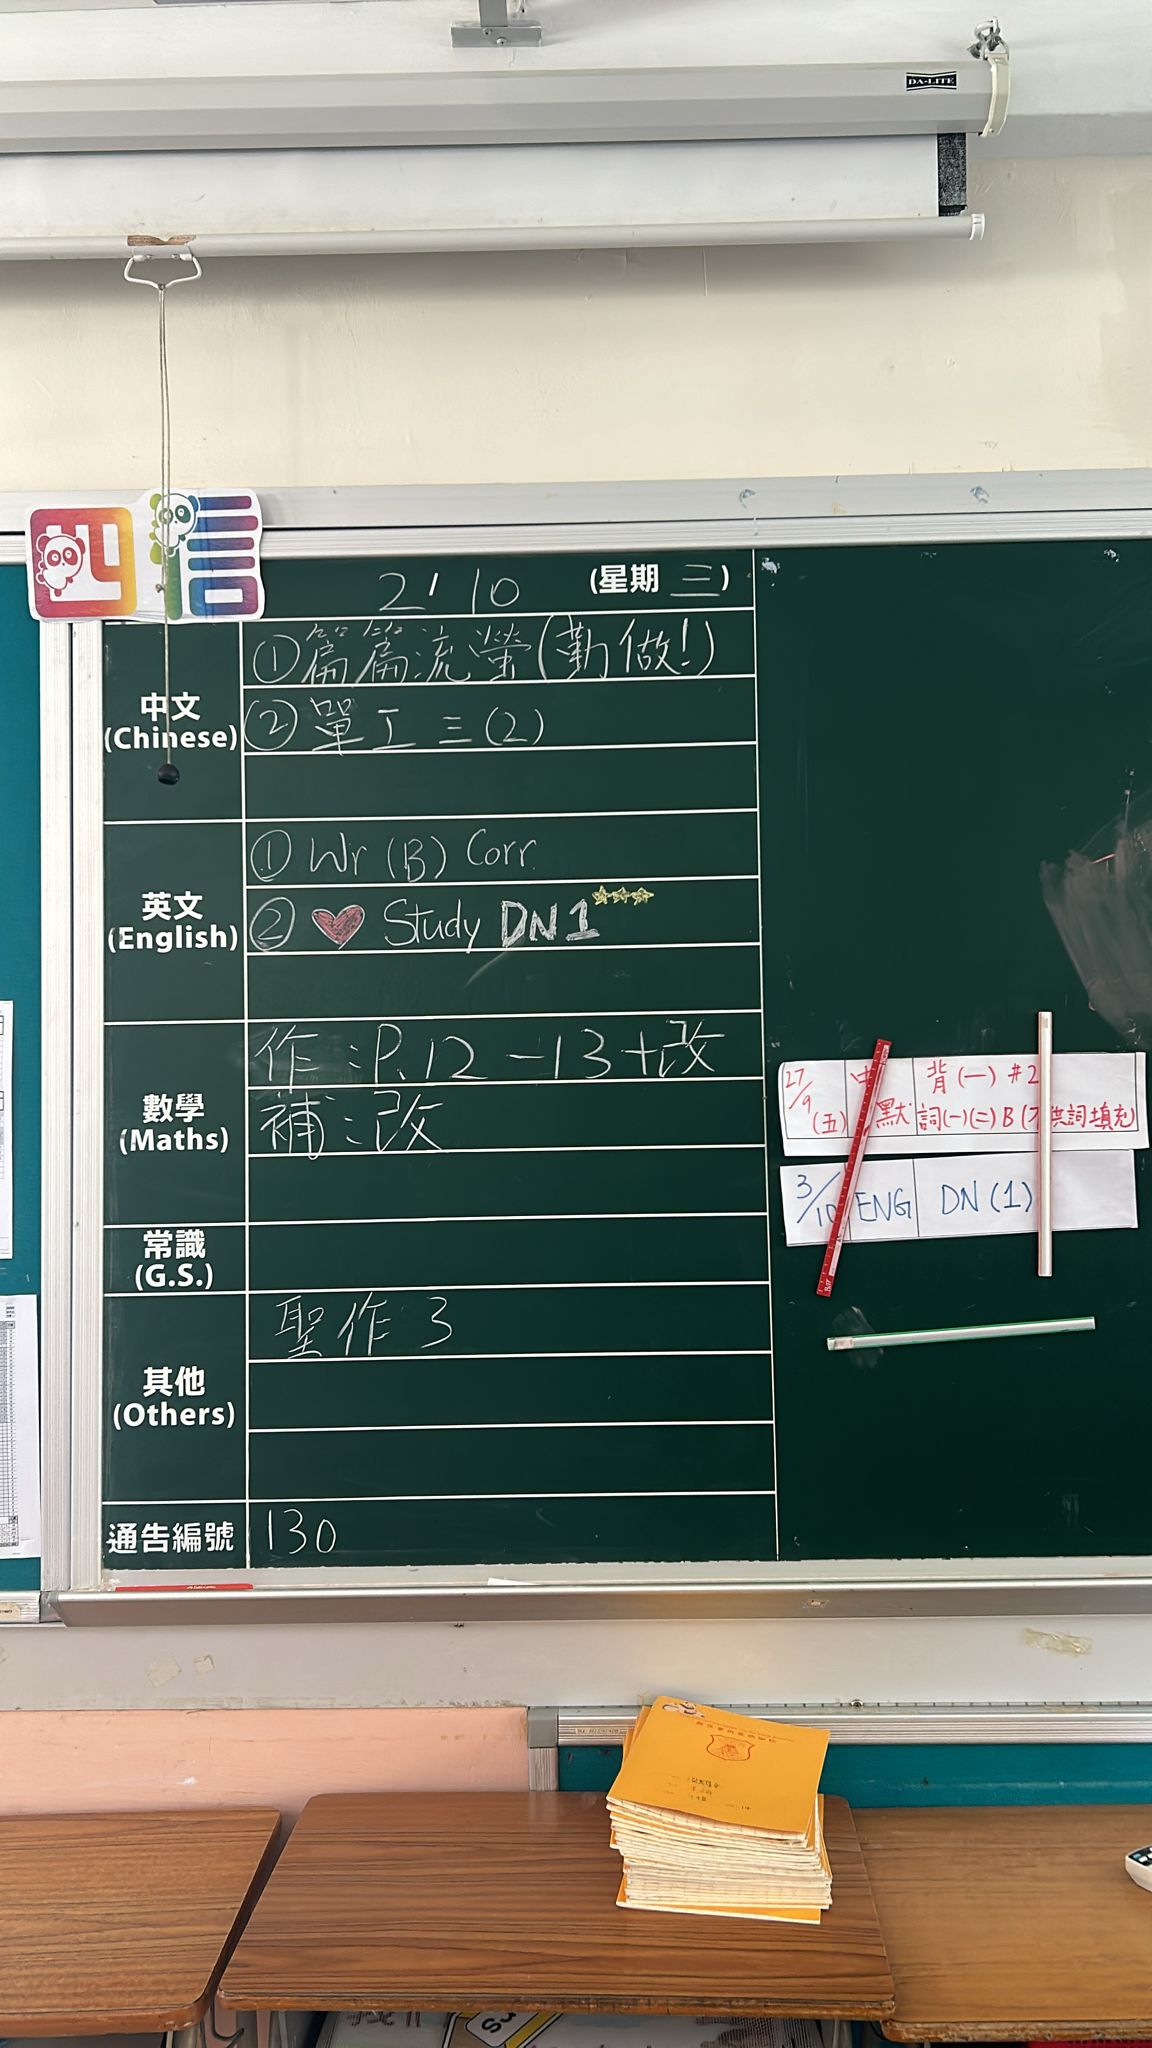 DA-LITE
四信
2' 10 (星期 三)
中文
(Chinese)
①篇篇流螢(勤做!)
②單工 三(2)
英文
(English)
① Wr (B) Corr.
② Study DN1
數學
(Maths)
作:P.12-13+改
補:改
常識
(G.S.)
其他
(Others)
聖作 3
通告編號
130
27/9 (五) 中默 背(一) #2
詞(一)(二) B (不供詞填充)
3/10 ENG DN (1)